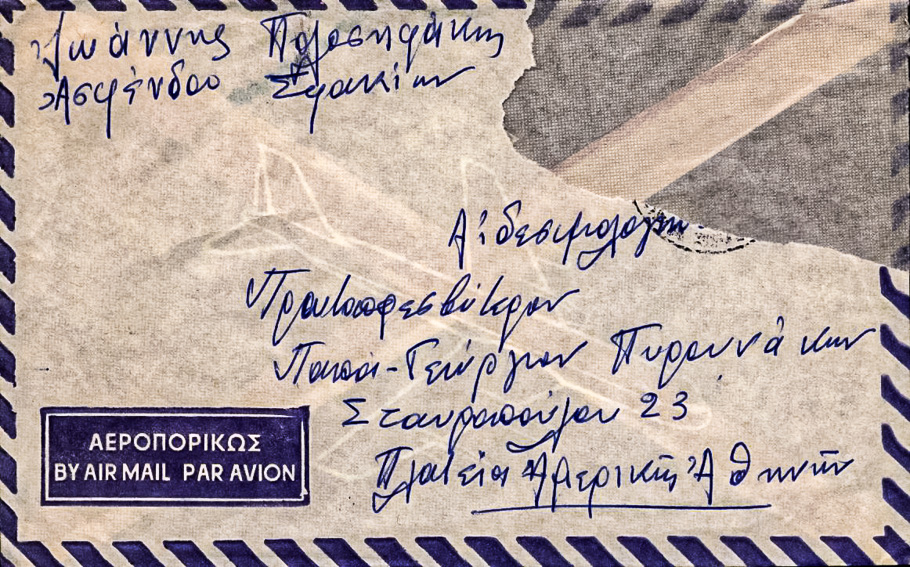 Ἰωάννης Πολεσηφάκης
Ἀσφένδου Σφακίων
Αἰδεσιμολογ.
Πρωτοπρεσβύτερον
Παπα-Γεώργιον Πυρουνάκην
Σταυροπούλου 23
Πλατεία Ἀμερικῆς Ἀθηνῶν
ΑΕΡΟΠΟΡΙΚΩΣ
BY AIR MAIL PAR AVION